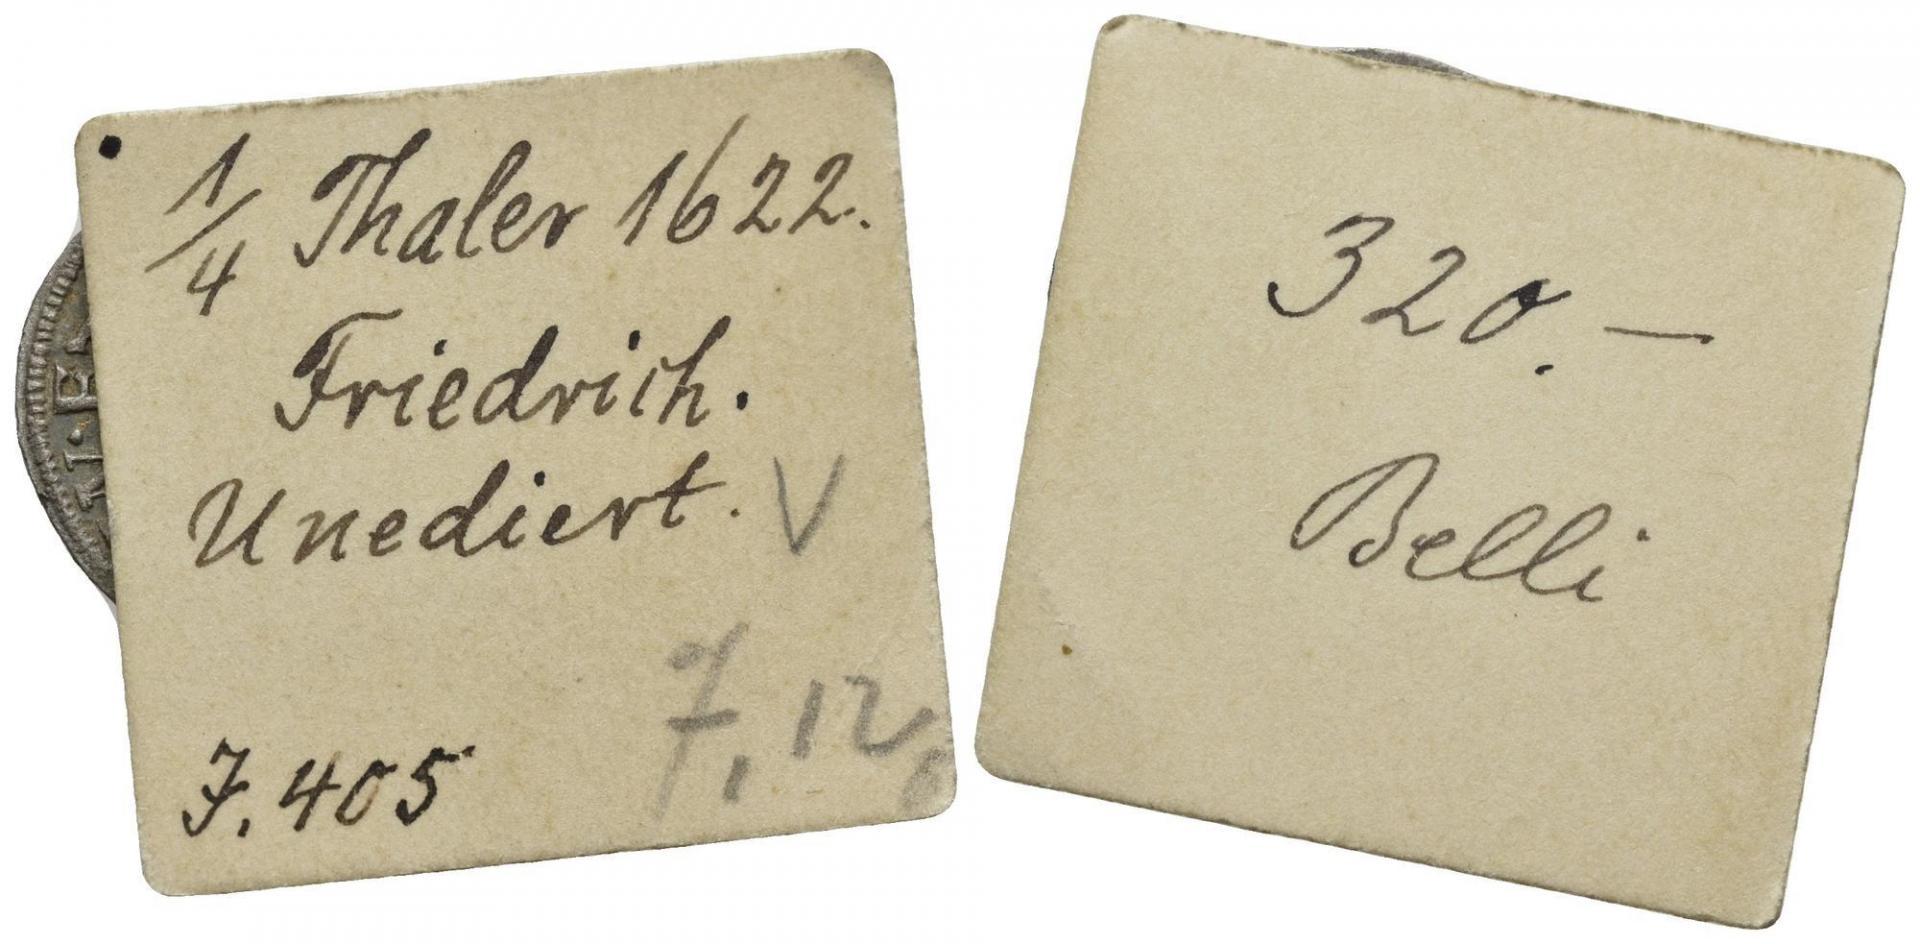 1/4 Thaler 1622.
Friedrich.
Unediert. V
7,12,
J. 405
320.—
Belli